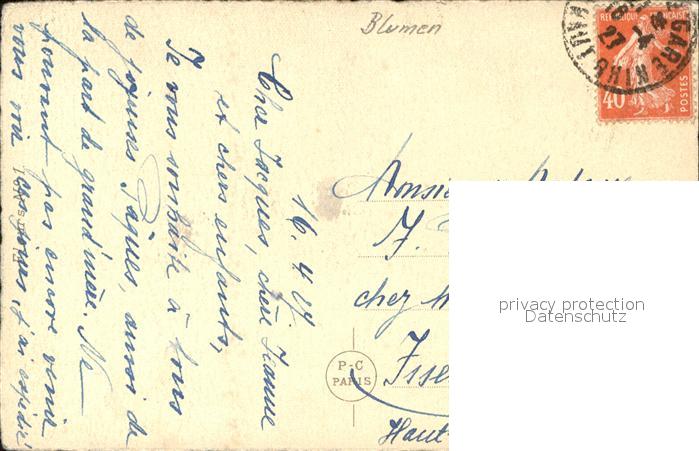 Blumen
REPUBLIQUE FRANÇAISE
40
POSTES
GARE
27
16.4.27.
Cher Jacques, chère Jeanne
et chers enfants,
Je vous souhaite à tous
de joyeuses Pâques, aussi de
la part de grand'mère. Ne
pouvant pas encore venir
vous voir ces jours, j'ai expédié
Monsieur
J.
chez M
Isse
Haut-
P-C
PARIS
privacy protection
Datenschutz